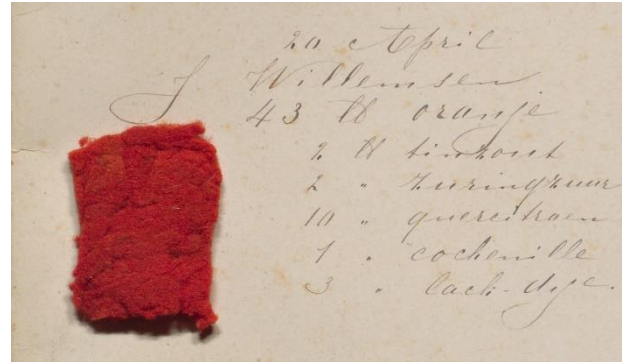 20 April
J Willemsen
43 ℔ oranje
2 ℔ tinzout
2 " zuringzuur
10 " quercitroen
1 " cochenille
3 " lack-dye.